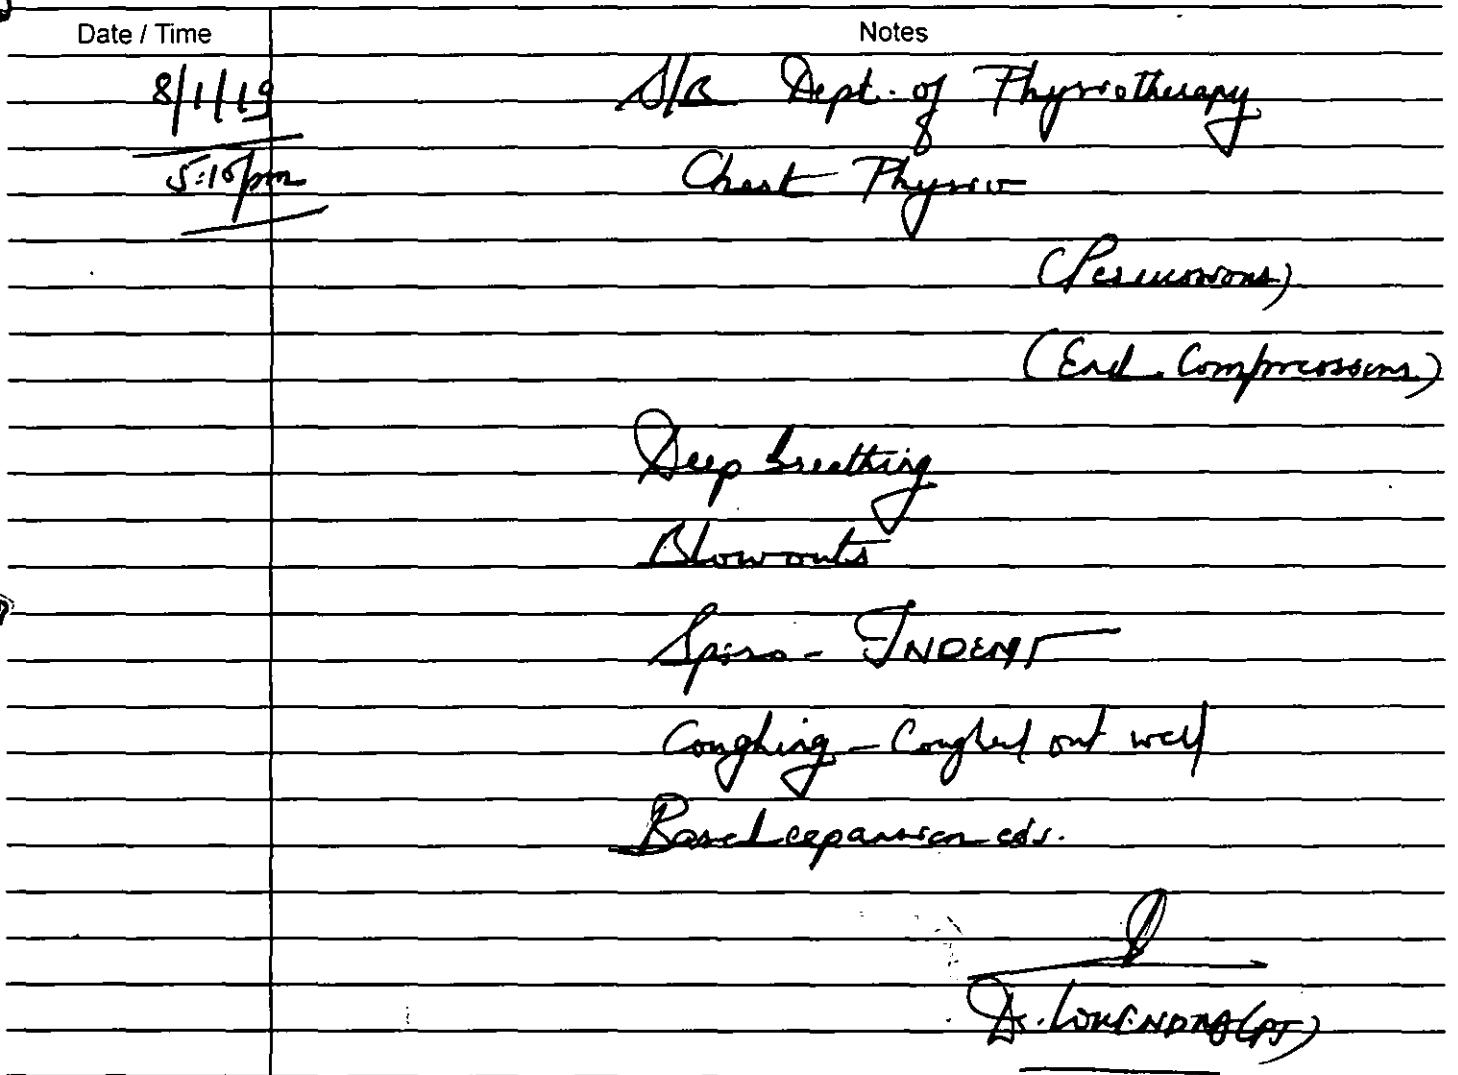 Date / Time Notes
8/1/19 S/B Dept. of Physiotherapy
5:15pm Chest Physio
(Percussions)
(End. Compressions)
Deep breathing
Blowouts
Spiro -
Coughing - Coughed out well
Basal expansion
Dr. LOKENDRA (PT)